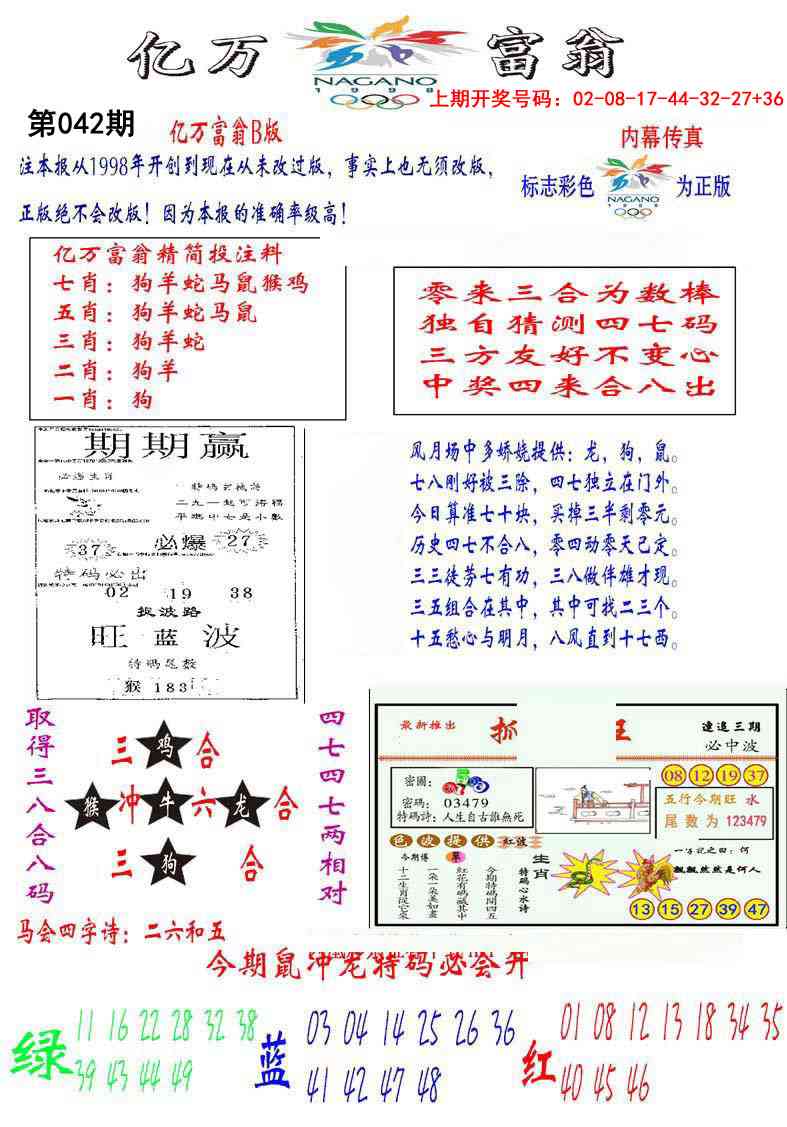 亿万富翁
NAGANO
1998
上期开奖号码：02-08-17-44-32-27+36
第042期
亿万富翁B版
内幕传真
注本报从1998年开创到现在从未改过版，事实上也无须改版，
正版绝不会改版！因为本报的准确率级高！
标志彩色
NAGANO
1998
为正版
亿万富翁精简投注料
七肖：狗羊蛇马鼠猴鸡
五肖：狗羊蛇马鼠
三肖：狗羊蛇
二肖：狗羊
一肖：狗
零来三合为数棒
独自猜测四七码
三方友好不变心
中奖四来合八出
期期赢
必遇生肖
特码玄机诗
二九一起可得福
平进中七是小数
37
必爆
27
特码必出
02 19 38
捉波路
旺蓝波
特码尾数
猴183
风月场中多娇娆提供：龙，狗，鼠。
七八刚好被三除，四七独立在门外。
今日算准七十块，买掉三半剩零元。
历史四七不合八，零四动零天已定。
三三徒劳七有功，三八做伴雄才现。
三五组合在其中，其中可找二三个。
十五愁心与明月，八风直到十七西。
取得三八合八码
三鸡合
猴冲牛六龙合
三狗合
四七四七两相对
马会四字诗：二六和五
最新推出
抓
王
連追三期
必中波
密圖：
密码：03479
特码詩：人生自古誰無死
08 12 19 37
五行今期旺 水
尾数为 123479
色波提供 紅波
今期博
單
十二生肖淀它来
一朵一朵美如畫
紅花有碼藏其中
今期特碼開四五
特码心水诗
生肖
一字記之曰：何
飄飄然然是何人
13 15 27 39 47
今期鼠冲龙特码必会开
绿
11 16 22 28 32 38
39 43 44 49
蓝
03 04 14 25 26 36
41 42 47 48
红
01 08 12 13 18 34 35
40 45 46